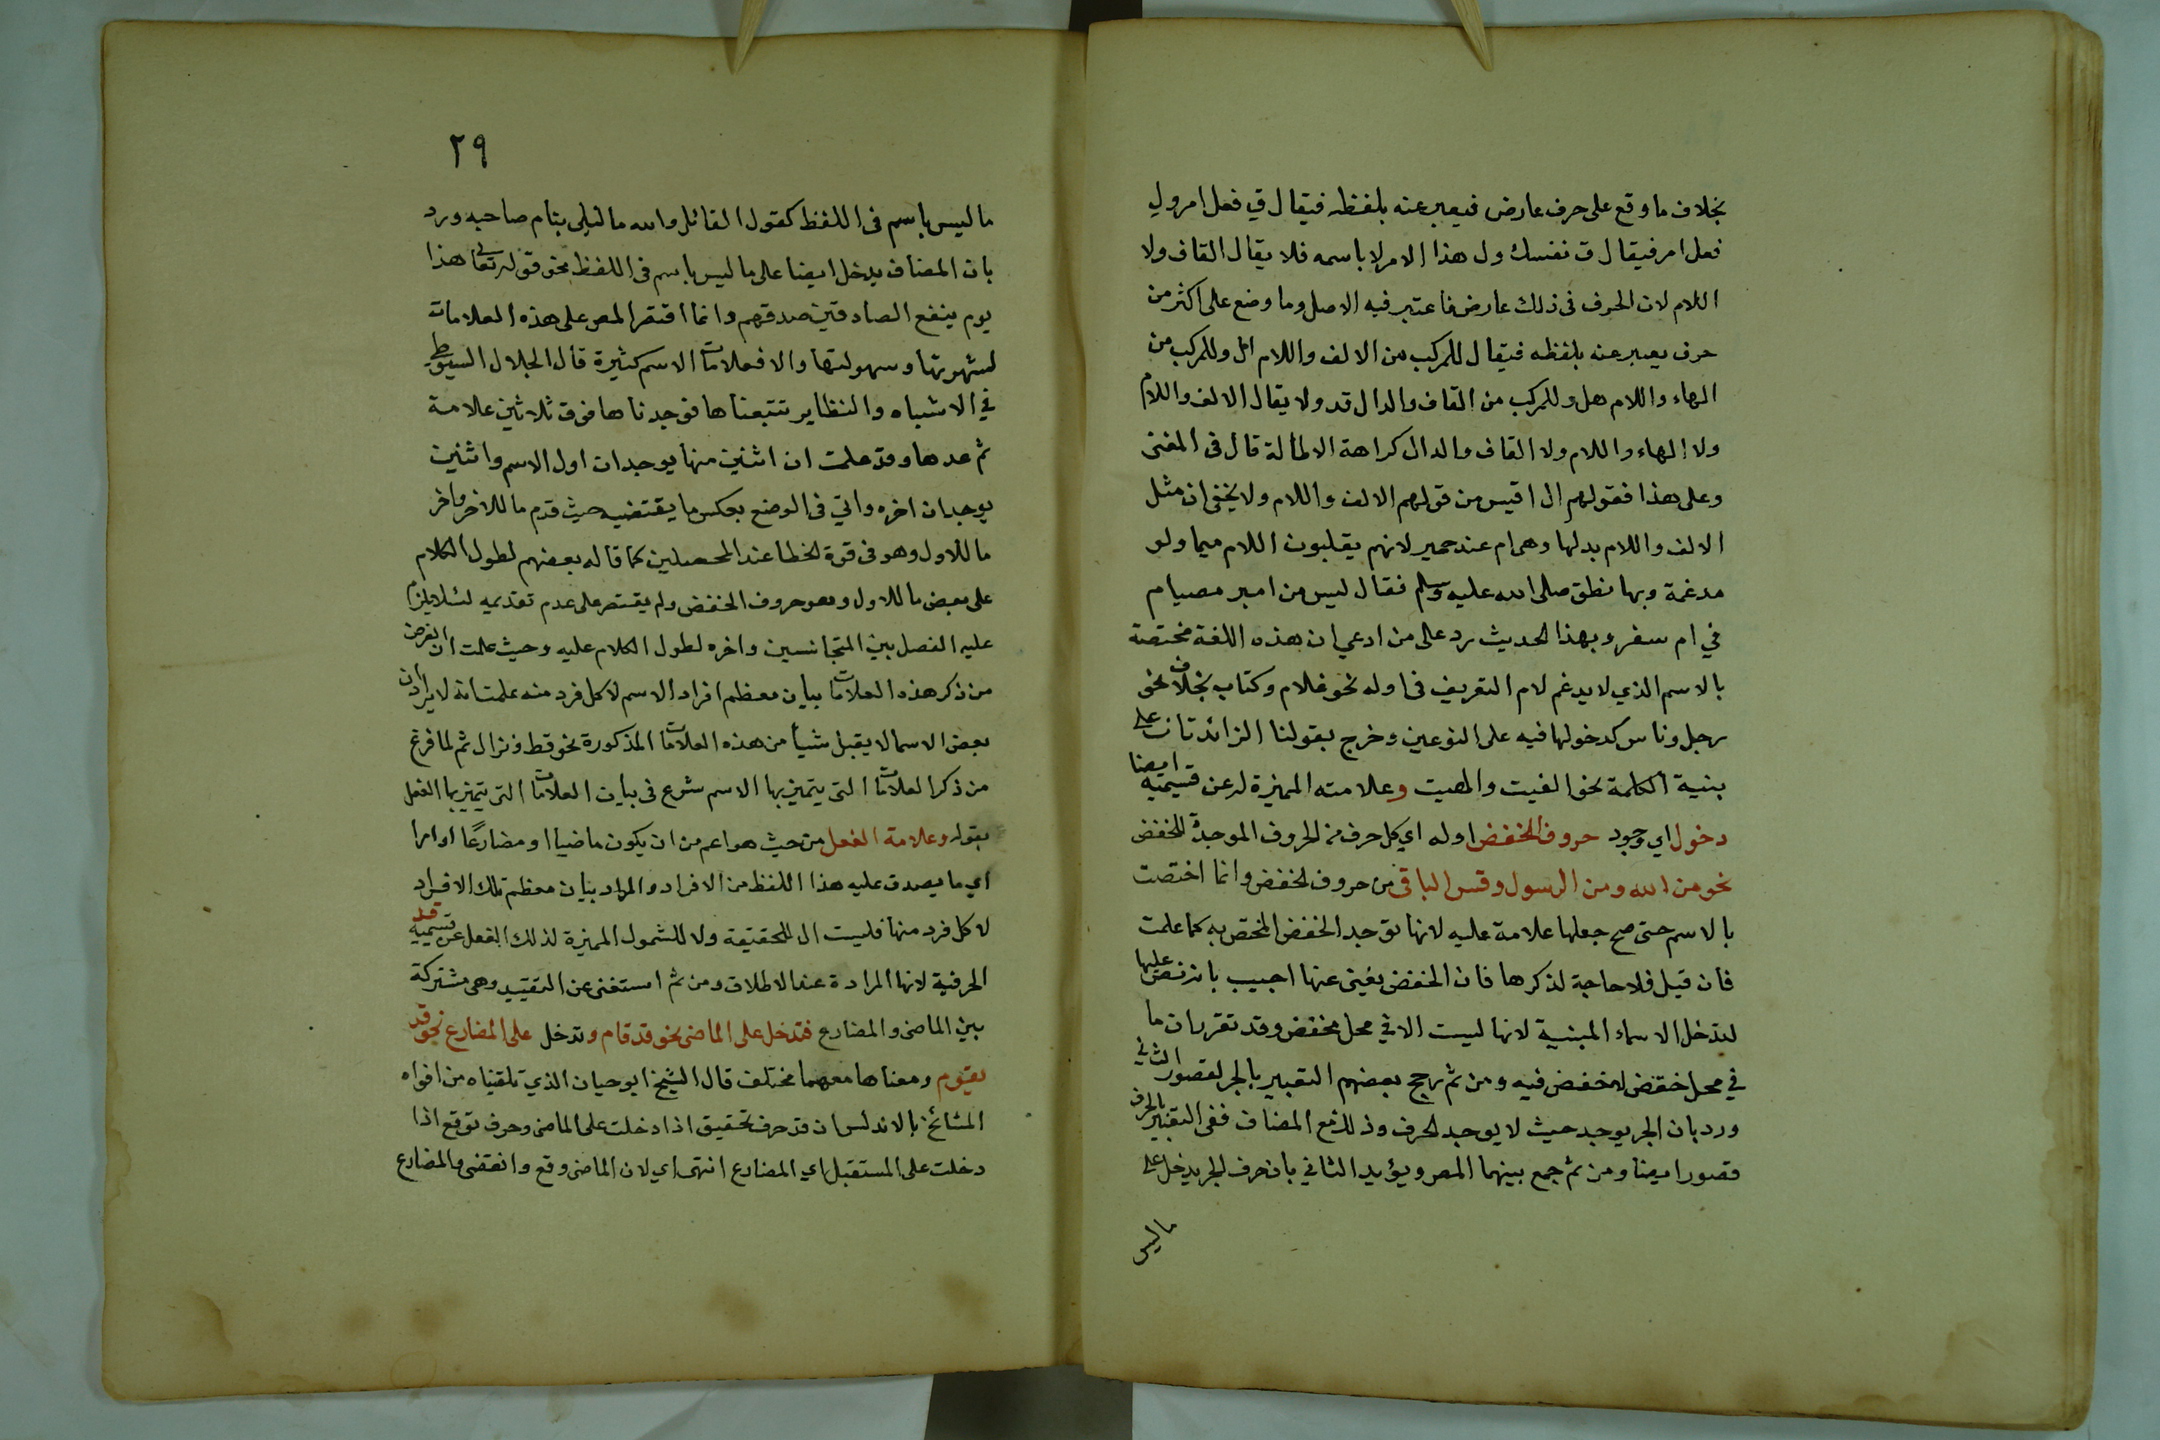 بخلاف ما وقع على حرف عارض فيعبر عنه بلفظه فيقال في ق فعل امر ول
فعل امر فيقال ق نفسك ول هذا الامر لا باسمه فلا يقال القاف ولا
اللام لان الحرف في ذلك عارض فاعتبر فيه الاصل وما وضع على اكثر من
حرف يعبر عنه بلفظه فيقال للمركب من الالف واللام ال وللمركب من
الهاء واللام هل وللمركب من القاف والدال قد ولا يقال الالف واللام
ولا الهاء واللام ولا القاف والدال كراهة الاطالة قال في المغنى
وعلى هذا فقولهم ال اقيس من قولهم الالف واللام ولا يخفى ان مثل
الالف واللام بدلها وهى ام عند حمير لانهم يقلبون اللام ميما ولو
مدغمة وبها نطق صلى الله عليه وسلم فقال ليس من امبر مصيام
في ام سفر وبهذا الحديث رد على من ادعي ان هذه اللغة مختصة
بالاسم الذي لا يدغم لام التعريف في اوله نحو غلام وكتاب بخلاف نحو
رجل وناس كدخولها فيه على النوعين وخرج بقولنا الزائدتان على
بنية الكلمة نحو الفيت والهيت وعلامته المميزة له عن قسيميه ايضا
دخول اي وجود حروف الخفض اوله اي كل حرف من الحروف الموجدة للخفض
نحو من الله ومن الرسول وقس الباقي من حروف الخفض وانما اختصت
بالاسم حتى صح جعلها علامة عليه لانها توجد الخفض المختص به كما علمت
فان قيل فلا حاجة لذكرها فان الخفض يغني عنها اجيب بانه نص عليها
لتدخل الاسماء المبنية لانها ليست الا في محل مخفض وقد تقرر ان ما
في محل خفض لا خفض فيه ومن ثم رجح بعضهم التعبير بالجر لقصور الثاني
ورد بان الجر يوجد حيث لا يوجد الحرف وذلك مع المضاف ففي التعبير بالحرف
قصور ايضا ومن ثم جمع بينهما المص ويؤيد الثاني بان حرف الجر يدخل على
ما ليس
٢٩
ما ليس باسم في اللفظ كقول القائل والله ما ليلي بنام صاحبه ورد
بان المضاف يدخل ايضا على ما ليس باسم في اللفظ نحو قوله تعالى هذا
يوم ينفع الصادقين صدقهم وانما اقتصر المص على هذه العلامات
لشهرتها وسهولتها والا فعلامات الاسم كثيرة قال الجلال السيوطي
في الاشباه والنظاير تتبعناها فوجدناها فوق ثلاثين علامة
ثم عدها وقد علمت ان اثنين منها يوجدان اول الاسم واثنين
يوجدان اخره واتي في الوضع بعكس ما يقتضيه حيث قدم ما للاخر واخر
ما للاول وهو في قوة الخطا عند المحصلين كما قاله بعضهم لطول الكلام
على بعض ما للاول وهو حروف الخفض ولم يقتصر على عدم تقديمه لئلا يلزم
عليه الفصل بين المتجانسين واخره لطول الكلام عليه وحيث علمت ان الغرض
من ذكر هذه العلامات بيان معظم افراد الاسم لا كل فرد منه علمت انه لا يراد ان
بعض الاسما لا يقبل شيأ من هذه العلامات المذكورة نحو قط ونزال ثم لما فرغ
من ذكر العلامات التي يتميز بها الاسم شرع في بيان العلامات التي يتميز بها الفعل
بقوله وعلامة الفعل من حيث هو اعم من ان يكون ماضيا او مضارعًا او امرا
اي ما يصدق عليه هذا اللفظ من الافراد والمراد بيان معظم تلك الافراد
لا كل فرد منها فليست ال للحقيقة ولا للشمول المميزة لذلك الفعل عن قسيميه قد
الحرفية لانها المرادة عند الاطلاق ومن ثم استغنى عن التقييد وهى مشتركة
بين الماضى والمضارع فتدخل على الماضى نحو قد قام وتدخل على المضارع نحو قد
يقوم ومعناها معهما مختلف قال الشيخ ابو حيان الذي تلقيناه من افواه
المشائخ بالاندلس ان قد حرف تحقيق اذا دخلت على الماضى وحرف توقع اذا
دخلت على المستقبل اي المضارع انتهى اي لان الماضى وقع وانقضى والمضارع